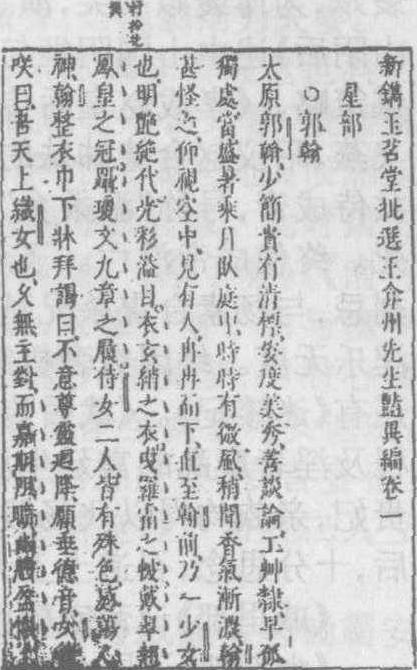 新鐫玉茗堂批選王弇州先生豔異編卷
星部
○郭翰
太原郭翰、少簡貴有清標、姿度美秀、善談論、工艸隸、早孤
獨處、當盛暑乘月臥庭中、時時有微風、稍聞香氣漸濃、翰
甚怪之、仰視空中見有人、冉冉而下、直至翰前、乃一少女
也、明艷絕代、光彩溢目、衣玄綃之衣、曳羅霜之帔、戴翠翹
鳳皇之冠、躡瓊文九章之履、侍女二人、皆有殊色、感蕩心
神、翰整衣巾、下牀拜謁曰、不意尊靈迥降、願垂德音、女微
咲曰、吾天上織女也、久無主對、而嘉期阻曠、幽態盈懷、上